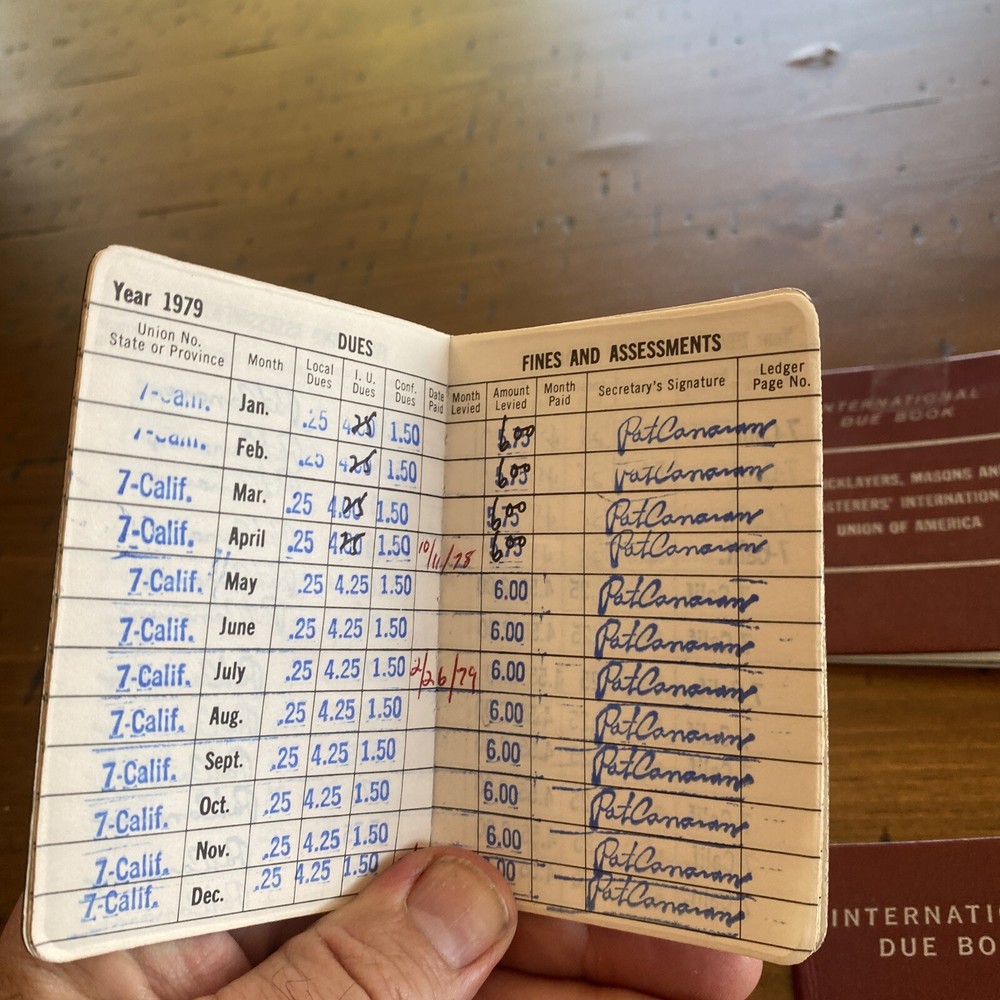 Year 1979
DUES
Union No.
State or Province
Month
Local
Dues
I. U.
Dues
Conf.
Dues
Date
Paid
7-Calif. Jan. .25 1.50
7-Calif. Feb. .25 1.50
7-Calif. Mar. .25 1.50
7-Calif. April .25 1.50 10/11/78
7-Calif. May .25 4.25 1.50
7-Calif. June .25 4.25 1.50
7-Calif. July .25 4.25 1.50 2/26/79
7-Calif. Aug. .25 4.25 1.50
7-Calif. Sept. .25 4.25 1.50
7-Calif. Oct. .25 4.25 1.50
7-Calif. Nov. .25 4.25 1.50
7-Calif. Dec. .25 4.25 1.50
FINES AND ASSESSMENTS
Month
Levied
Amount
Levied
Month
Paid
Secretary's Signature
Ledger
Page No.
Pat Canavan
Pat Canavan
Pat Canavan
Pat Canavan
6.00 Pat Canavan
6.00 Pat Canavan
6.00 Pat Canavan
6.00 Pat Canavan
6.00 Pat Canavan
6.00 Pat Canavan
6.00 Pat Canavan
Pat Canavan
INTERNATIONAL
DUE BOOK
CKLAYERS, MASONS AN
STERERS' INTERNATION
UNION OF AMERICA
INTERNATI
DUE BO